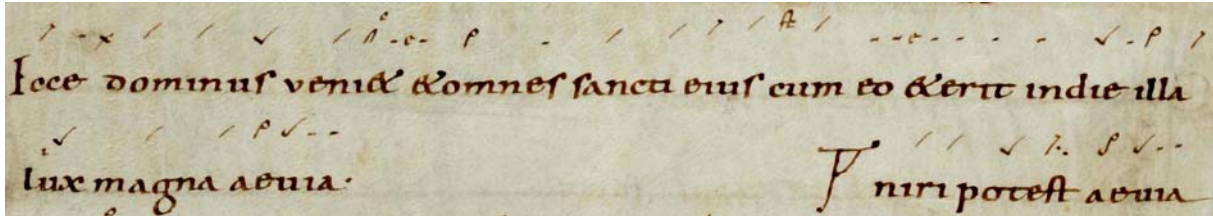 Ecce dominus ueni& &omnes sancti eius cum eo &erit indie illa
lux magna aeuia· P niri potest aeuia